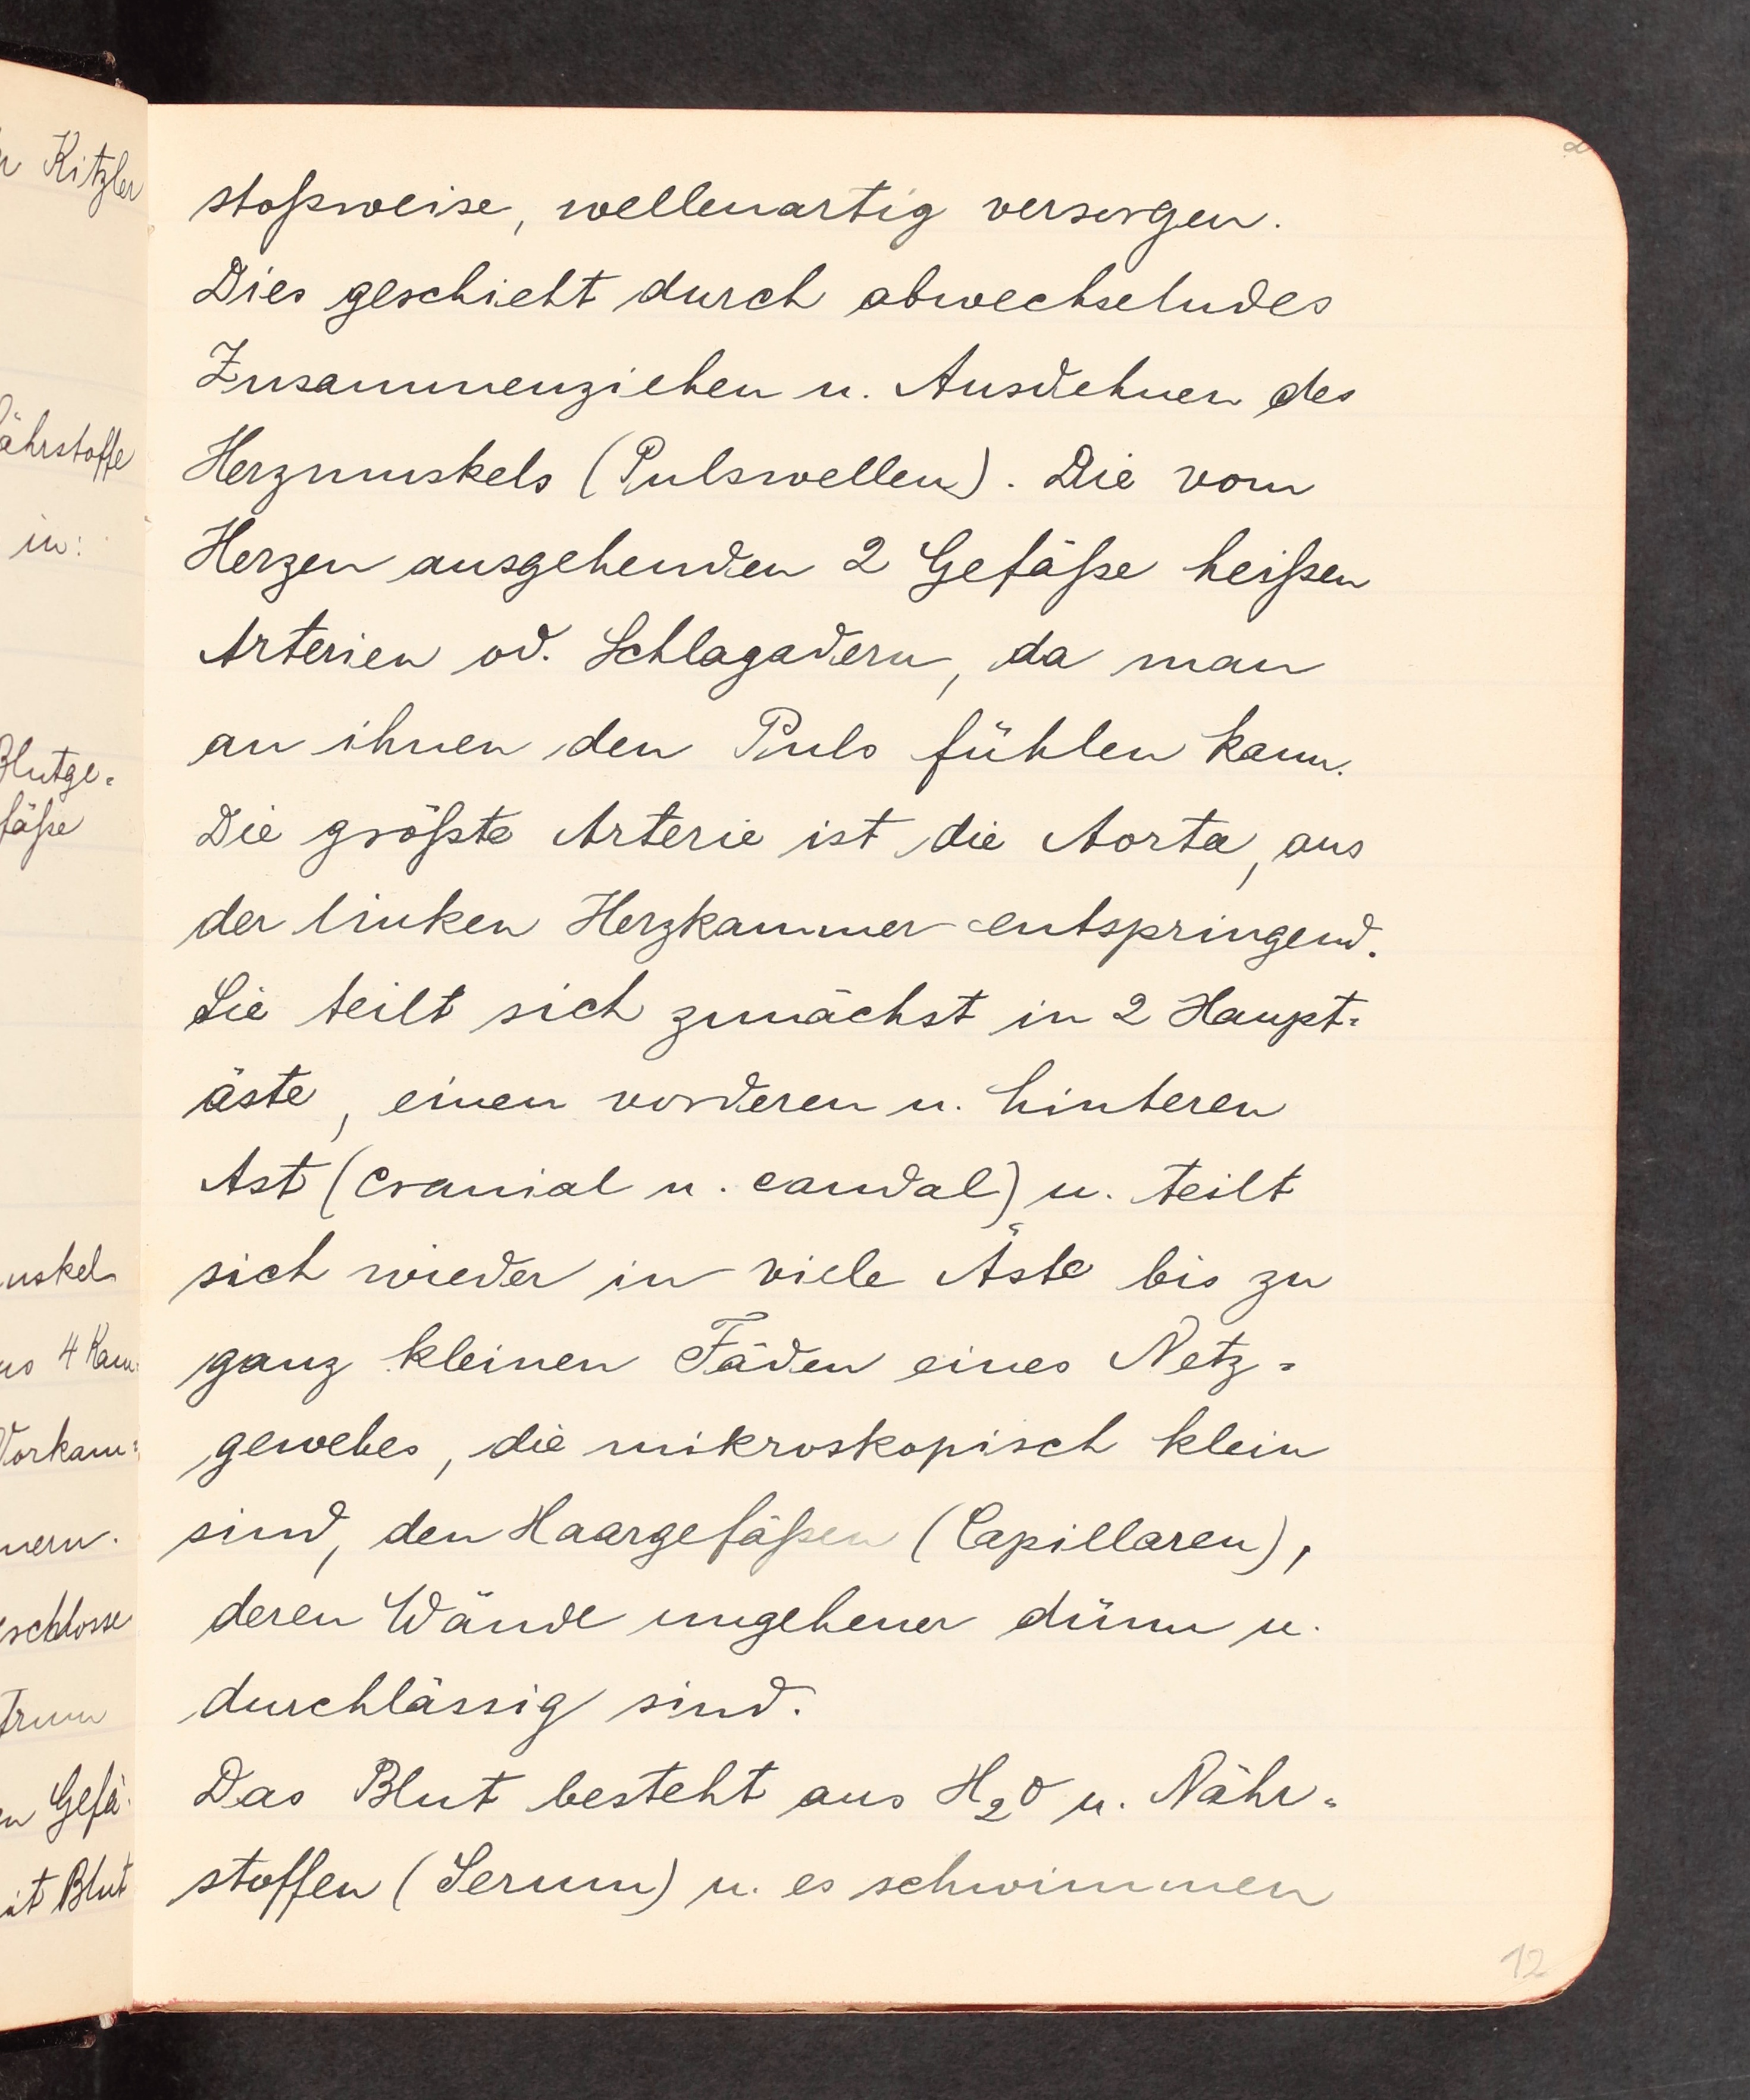 stoßweise, wellenartig versorgen.
Dies geschieht durch abwechselndes
Zusammenziehen u. Ausdehnen des
Herzmuskels (Pulswellen). Die vom
Herzen ausgehenden 2 Gefäße heißen
Arterien od. Schlagadern, da man
an ihnen den Puls fühlen kann.
Die größte Arterie ist die Aorta, aus
der linken Herzkammer entspringend.
Sie teilt sich zunächst in 2 Haupt=
äste, einen vorderen u. hinteren
Ast (cranial u. caudal) u. teilt
sich wieder in viele Äste bis zu
ganz kleinen Fäden eines Netz=
gewebes, die mikroskopisch klein
sind, den Haargefäßen (Capillaren),
deren Wände ungeheuer dünn u.
durchlässig sind.
Das Blut besteht aus H₂O u. Nähr=
stoffen (Serum) u. es schwimmen
12
Kitzler
ährstoffe
in:
Blutge=
fäße
uskel
4 Kam=
Vorkam=
mern.
schlosse
Gefä=
Blut